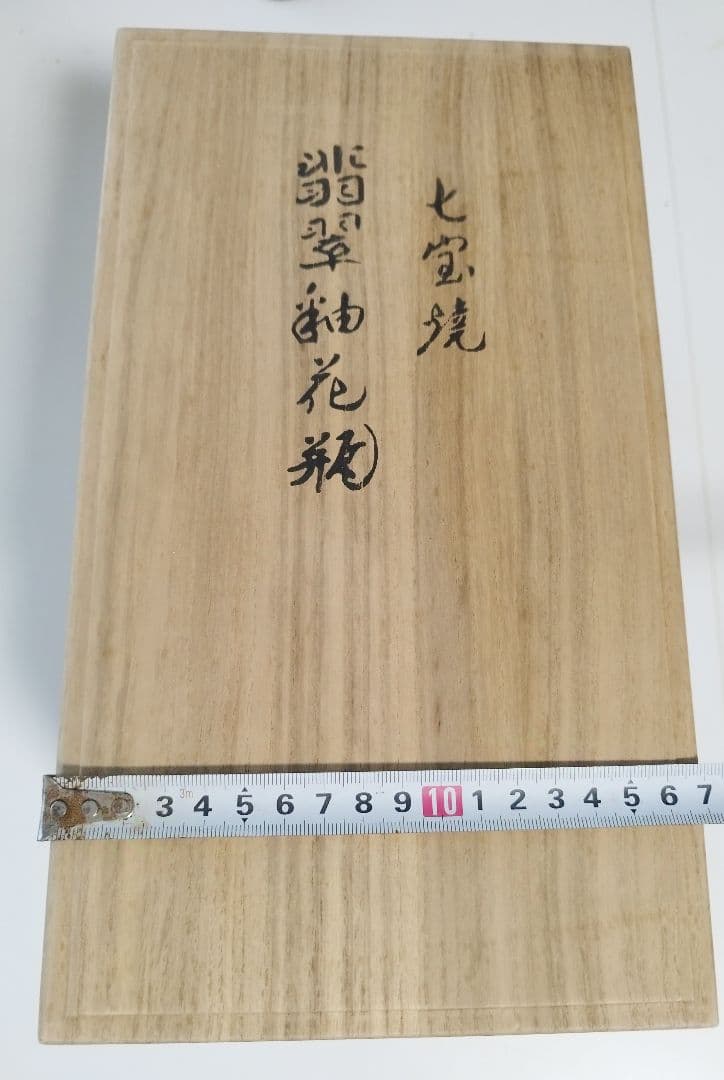 七宝焼
翡翠釉花瓶
3m
3 4 5 6 7 8 9 10 1 2 3 4 5 6 7